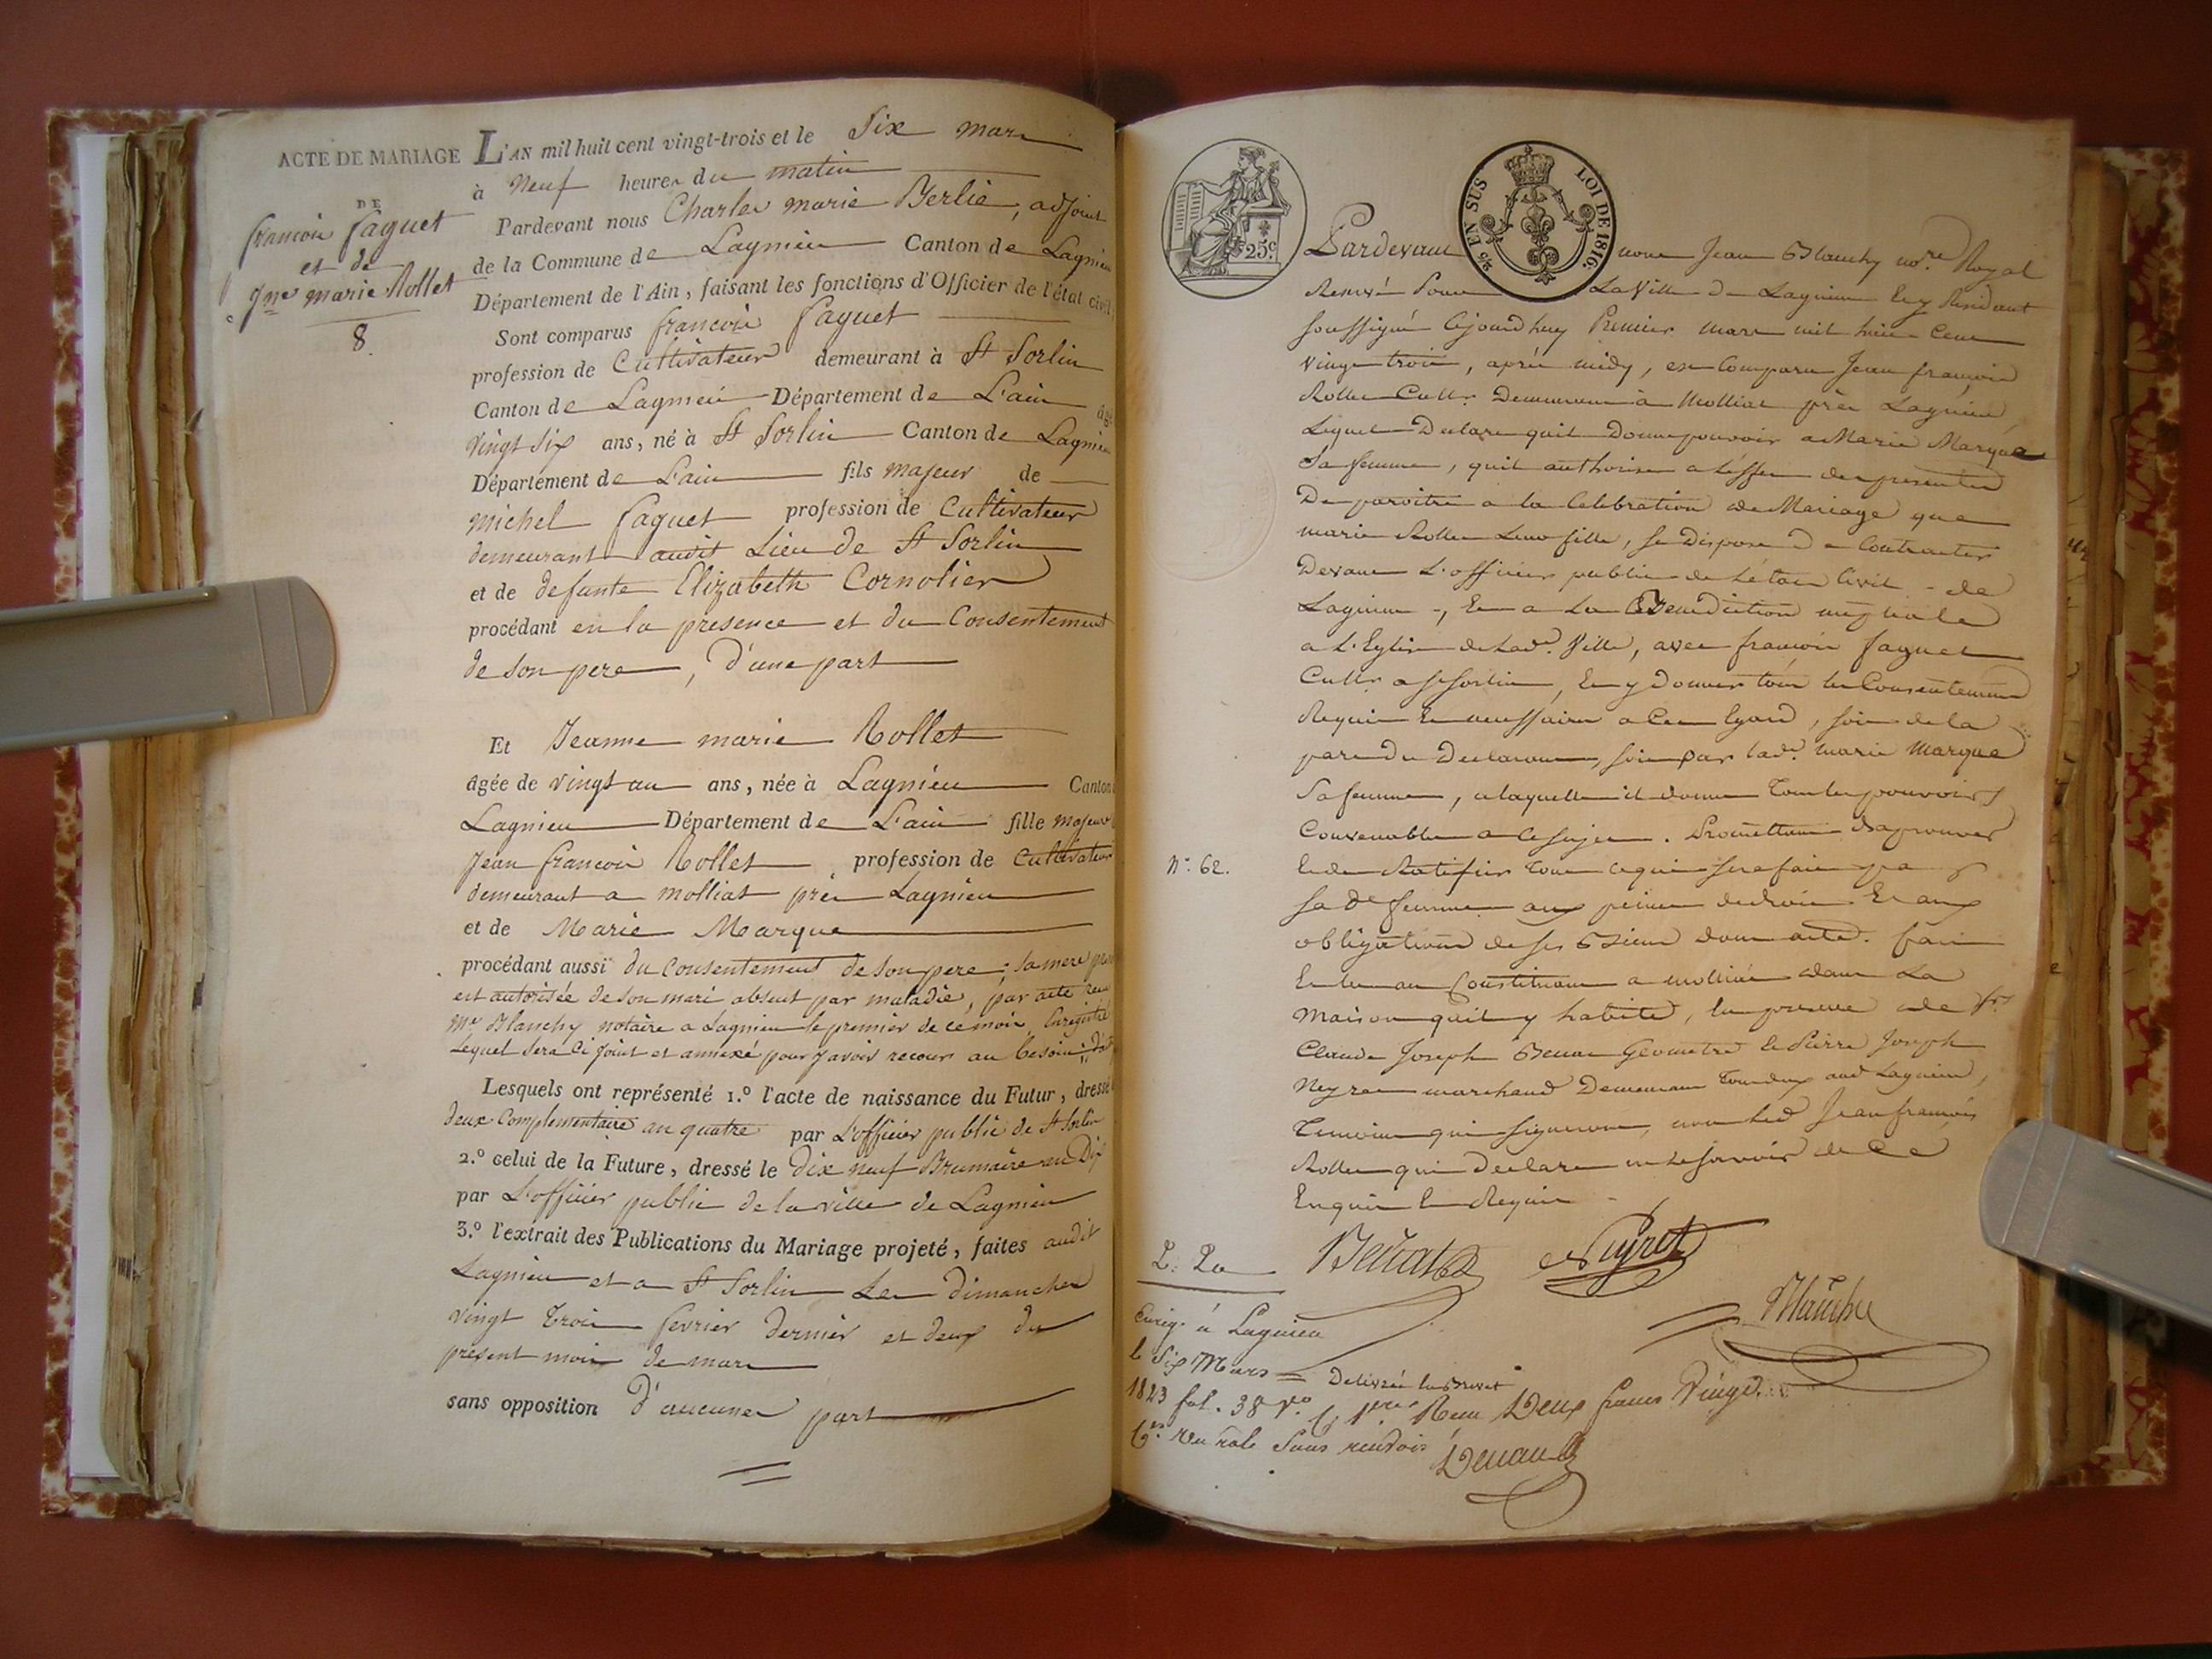 ACTE DE MARIAGE
DE
françois faguet
et de
Jne marie Rollet
8.
L'AN mil huit cent vingt-trois et le Six mars
à Neuf heures du matin
Pardevant nous Charles marie Berlie, adjoint
de la Commune de Lagnieu Canton de Lagnieu
Département de l'Ain, faisant les fonctions d'Officier de l'état civil
Sont comparus françois faguet
profession de Cultivateur demeurant à St Sorlin
Canton de Lagnieu Département de L'ain âgé
vingt six ans, né à St Sorlin Canton de Lagnieu
Département de L'ain fils majeur de
michel faguet profession de Cultivateur
demeurant audit Lieu de St Sorlin
et de defunte Elizabeth Cornolier
procédant en la presence et du Consentement
de son pere, D'une part
Et Jeanne marie Rollet
âgée de vingt un ans, née à Lagnieu Canton
Lagnieu Département de L'ain fille majeur
Jean françois Rollet profession de Cultivateur
demeurant a molliat près Lagnieu
et de Marie Marque
procédant aussi du Consentement de son pere; sa mere
est autorisée de son mari absent par maladie, par acte reçu
Me Blanchy notaire a Lagnieu le premier de ce mois, Enregistré
Lequel Sera Ci joint et annexé pour y avoir recours au besoin;
Lesquels ont représenté 1.º l'acte de naissance du Futur, dressé
deux Complementaire an quatre par L'officier public de St Sorlin
2.º celui de la Future, dressé le dix neuf Brumaire an Dix
par L'officier public de la ville de Lagnieu
3.º l'extrait des Publications du Mariage projeté, faites audit
Lagnieu et a St Sorlin Les dimanches
vingt trois fevrier dernier et deux du
présent mois de mars
sans opposition d'aucunes part
25c.
2/5 EN SUS
LOI DE 1816.
Pardevant nous Jean Blanchy nore. Royal
Reservé Pour La Ville De Lagnieu En y Residant
soussigné Cejourd'huy Premier mars mil huit Cent
vingt trois, après midy, est Comparu Jean françois
Rollet Cultr. Demeurant à Molliat près Lagnieu
Lequel Declare quil Donne pouvoir a Marie Marque
Sa femme, quil authorise a L'effet des presentes
De paroitre a la Celebration de Mariage que
marie Rollet Leur fille, se Dispose De Contracter
Devant L'officier public de L'état Civil de
Lagnieu, Et a La Benediction nuptiale
a L'Eglise de Lade. Ville, avec françois faguet
Cultr. a St Sorlin, En y Donner tous les Consentements
Requis Et necessaires a Cet Egard, soit de la
part Du Declarant, soit par lade. marie Marque
Sa femme, a laquelle il donne Tous les pouvoirs
Convenables a Ce sujet. Promettant D'aprouver
Et de Ratifier Tout Ce qui sera fait par
Nº. 62.
sa de femme aux peines de droit Et aux
obligations de ses Biens dont acte. fait
Et lu au Constituant a molliat dans La
Maison quil y habite, En presence de Sr.
Claude Joseph Benat Géometre Et Pierre Joseph
Neyret marchand Demeurant Tous deux aud Lagnieu,
Temoins qui signeront, non Led Jean françois
Rollet qui Declare ne Le savoir de Ce
Enquis Et Requis
Neyret
Blanchy
Enregé. à Lagnieu
le Six Mars
Delivré En Brevet
1823 fol. 38 Vo. C. 1ere Reçu Deux francs Vingt
sans renvois